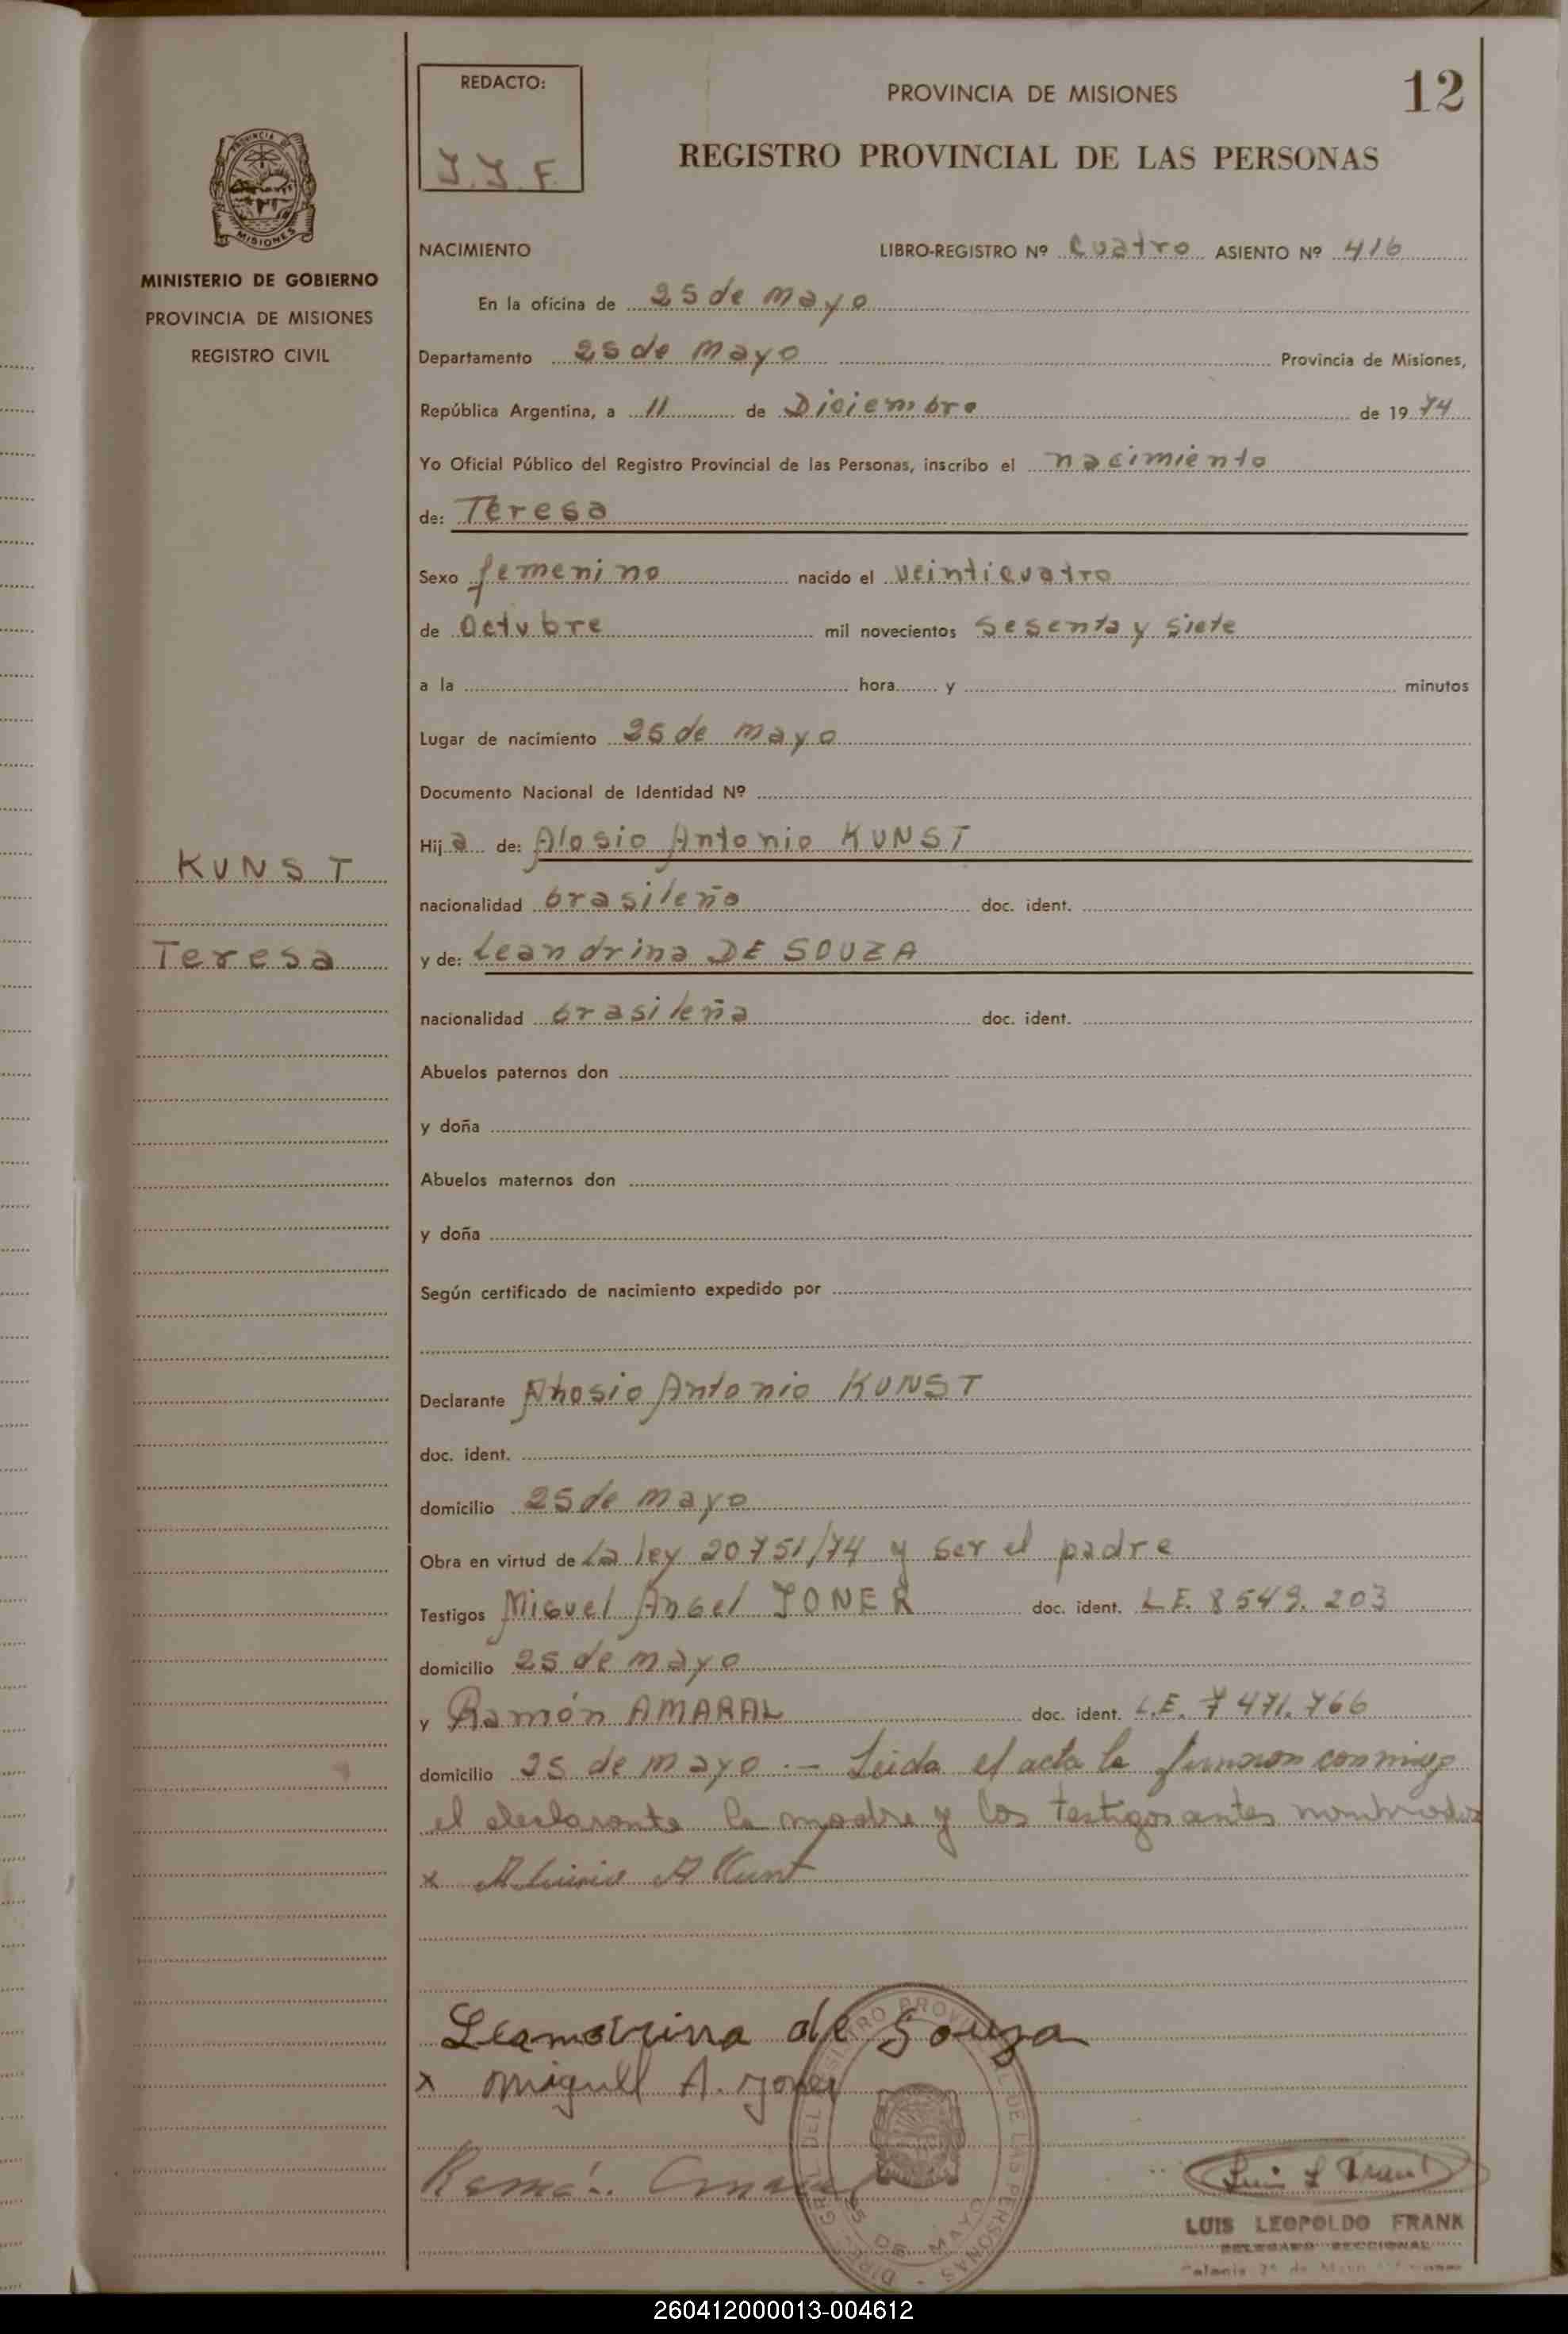 REDACTO:
J.J.F.
PROVINCIA DE MISIONES
12
REGISTRO PROVINCIAL DE LAS PERSONAS
MISIONES
MINISTERIO DE GOBIERNO
PROVINCIA DE MISIONES
REGISTRO CIVIL
NACIMIENTO LIBRO-REGISTRO Nº cuatro ASIENTO Nº 416
En la oficina de 25 de mayo
Departamento 25 de mayo Provincia de Misiones,
República Argentina, a 11 de Diciembre de 1974
Yo Oficial Público del Registro Provincial de las Personas, inscribo el nacimiento
de: Teresa
Sexo femenino nacido el veinticuatro
de Octubre mil novecientos sesenta y siete
a la hora y minutos
Lugar de nacimiento 25 de mayo
Documento Nacional de Identidad Nº
Hija de: Alosio Antonio KUNST
KUNST
nacionalidad brasileño doc. ident.
Teresa
y de: Leandrina DE SOUZA
nacionalidad brasileña doc. ident.
Abuelos paternos don
y doña
Abuelos maternos don
y doña
Según certificado de nacimiento expedido por
Declarante Alosio Antonio KUNST
doc. ident.
domicilio 25 de mayo
Obra en virtud de La ley 20751/74 y ser el padre
Testigos Miguel Angel JONER doc. ident. L.E. 8549.203
domicilio 25 de mayo
y Ramón AMARAL doc. ident. L.E. 7471.766
domicilio 25 de mayo.- Leida el acta la firmaron conmigo
el declarante la madre y los testigos antes nombrados
x A Kunst
Leandrina de Souza
x Miguel A. Joner
Ramón
Luis L Frank
LUIS LEOPOLDO FRANK
DELEGADO SECCIONAL
Colonia 25 de Mayo
260412000013-004612